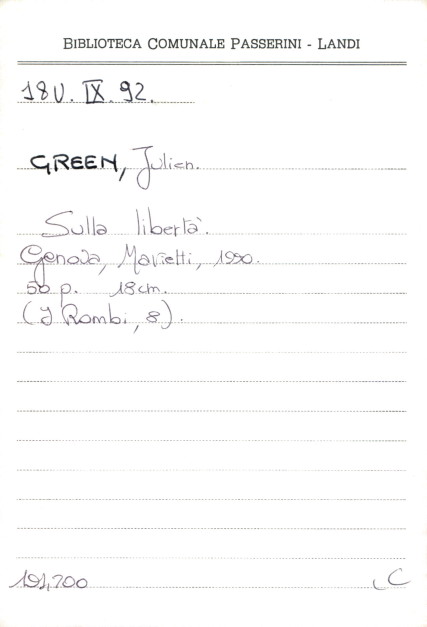 BIBLIOTECA COMUNALE PASSERINI - LANDI
18U. IX. 92.
GREEN, Julien.
Sulla libertà.
Genova, Marietti, 1990.
50 p. 18cm.
(I Rombi, 8).
191,200
C